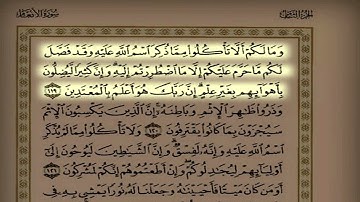 الجزء الثامن
سورة الأنعام
وَمَا لَكُمْ أَلَّا تَأْكُلُوا مِمَّا ذُكِرَ اسْمُ اللَّهِ عَلَيْهِ وَقَدْ فَصَّلَ
لَكُم مَّا حَرَّمَ عَلَيْكُمْ إِلَّا مَا اضْطُرِرْتُمْ إِلَيْهِ وَإِنَّ كَثِيرًا لَّيُضِلُّونَ
بِأَهْوَائِهِم بِغَيْرِ عِلْمٍ إِنَّ رَبَّكَ هُوَ أَعْلَمُ بِالْمُعْتَدِينَ ١١٩
وَذَرُوا ظَاهِرَ الْإِثْمِ وَبَاطِنَهُ إِنَّ الَّذِينَ يَكْسِبُونَ الْإِثْمَ
سَيُجْزَوْنَ بِمَا كَانُوا يَقْتَرِفُونَ ١٢٠ وَلَا تَأْكُلُوا مِمَّا لَمْ يُذْكَرِ
اسْمُ اللَّهِ عَلَيْهِ وَإِنَّهُ لَفِسْقٌ وَإِنَّ الشَّيَاطِينَ لَيُوحُونَ إِلَى
أَوْلِيَائِهِمْ لِيُجَادِلُوكُمْ وَإِنْ أَطَعْتُمُوهُمْ إِنَّكُمْ لَمُشْرِكُونَ ١٢١
أَوَمَن كَانَ مَيْتًا فَأَحْيَيْنَاهُ وَجَعَلْنَا لَهُ نُورًا يَمْشِي بِهِ فِي